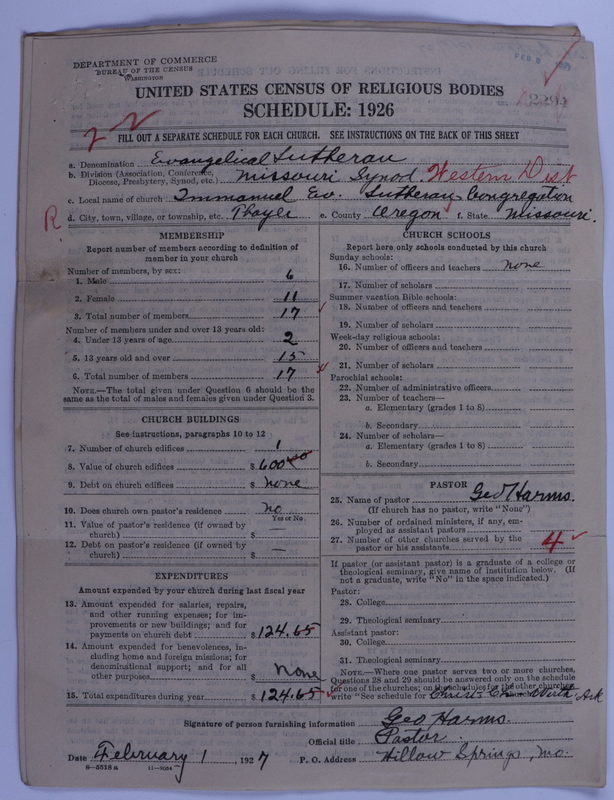 DEPARTMENT OF COMMERCE
BUREAU OF THE CENSUS
WASHINGTON
FEB 8
UNITED STATES CENSUS OF RELIGIOUS BODIES
SCHEDULE: 1926
FILL OUT A SEPARATE SCHEDULE FOR EACH CHURCH. SEE INSTRUCTIONS ON THE BACK OF THIS SHEET
a. Denomination Evangelical Lutheran
b. Division (Association, Conference, Diocese, Presbytery, Synod, etc.) Missouri Synod Western Dist
c. Local name of church Immanuel Ev. Lutheran Congregation
R
d. City, town, village, or township, etc. Thayer e. County Oregon f. State Missouri.
MEMBERSHIP
Report number of members according to definition of
member in your church
Number of members, by sex:
1. Male 6
2. Female 11
3. Total number of members 17
Number of members under and over 13 years old:
4. Under 13 years of age 2
5. 13 years old and over 15
6. Total number of members 17
NOTE.—The total given under Question 6 should be
same as the total of males and females given under Question 3.
CHURCH BUILDINGS
See instructions, paragraphs 10 to 12
7. Number of church edifices 1
8. Value of church edifices $ 600 00
9. Debt on church edifices $ none
10. Does church own pastor's residence no
Yes or No
11. Value of pastor's residence (if owned by
church) $ —
12. Debt on pastor's residence (if owned by
church) $ —
EXPENDITURES
Amount expended by your church during last fiscal year
13. Amount expended for salaries, repairs,
and other running expenses; for im-
provements or new buildings; and for
payments on church debt $ 124.65
14. Amount expended for benevolences, in-
cluding home and foreign missions; for
denominational support; and for all
other purposes $ None
15. Total expenditures during year $ 124.65
CHURCH SCHOOLS
Report here only schools conducted by this church
Sunday schools:
16. Number of officers and teachers none
17. Number of scholars
Summer vacation Bible schools:
18. Number of officers and teachers
19. Number of scholars
Week-day religious schools:
20. Number of officers and teachers
21. Number of scholars
Parochial schools:
22. Number of administrative officers
23. Number of teachers—
a. Elementary (grades 1 to 8)
b. Secondary
24. Number of scholars—
a. Elementary (grades 1 to 8)
b. Secondary
PASTOR
25. Name of pastor Geo Harms.
(If church has no pastor, write "None")
26. Number of ordained ministers, if any, em-
ployed as assistant pastors
27. Number of other churches served by the
pastor or his assistants 4
If pastor (or assistant pastor) is a graduate of a college or
theological seminary, give name of institution below. (If
not a graduate, write "No" in the space indicated.)
Pastor:
28. College
29. Theological seminary
Assistant pastor:
30. College
31. Theological seminary
NOTE.—Where one pastor serves two or more churches,
Questions 28 and 29 should be answered only on the schedule
for one of the churches; on the schedules for the other churches
write "See schedule for Christ Ch Ark
Signature of person furnishing information Geo Harms
Official title Pastor
Date February 1, 1927 P. O. Address Willow Springs, Mo.
8—5518a 11—9054